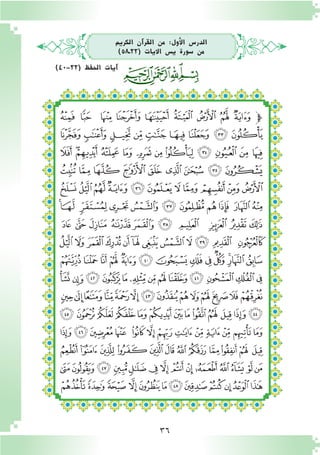 الدرس الأول: من القرآن الكريم
من سورة يس الآيات (٣٣-٥٨)
آيات الحفظ (٣٣-٤٠)
بِسْمِ اللَّهِ الرَّحْمَٰنِ الرَّحِيمِ
﴿ وَءَايَةٌ لَّهُمُ ٱلْأَرْضُ ٱلْمَيْتَةُ أَحْيَيْنَٰهَا وَأَخْرَجْنَا مِنْهَا حَبًّا فَمِنْهُ
يَأْكُلُونَ ٣٣ وَجَعَلْنَا فِيهَا جَنَّٰتٍ مِّن نَّخِيلٍ وَأَعْنَٰبٍ وَفَجَّرْنَا
فِيهَا مِنَ ٱلْعُيُونِ ٣٤ لِيَأْكُلُوا۟ مِن ثَمَرِهِۦ وَمَا عَمِلَتْهُ أَيْدِيهِمْ أَفَلَا
يَشْكُرُونَ ٣٥ سُبْحَٰنَ ٱلَّذِى خَلَقَ ٱلْأَزْوَٰجَ كُلَّهَا مِمَّا تُنۢبِتُ
ٱلْأَرْضُ وَمِنْ أَنفُسِهِمْ وَمِمَّا لَا يَعْلَمُونَ ٣٦ وَءَايَةٌ لَّهُمُ ٱلَّيْلُ نَسْلَخُ
مِنْهُ ٱلنَّهَارَ فَإِذَا هُم مُّظْلِمُونَ ٣٧ وَٱلشَّمْسُ تَجْرِى لِمُسْتَقَرٍّ لَّهَا
ذَٰلِكَ تَقْدِيرُ ٱلْعَزِيزِ ٱلْعَلِيمِ ٣٨ وَٱلْقَمَرَ قَدَّرْنَٰهُ مَنَازِلَ حَتَّىٰ عَادَ
كَٱلْعُرْجُونِ ٱلْقَدِيمِ ٣٩ لَا ٱلشَّمْسُ يَنۢبَغِى لَهَآ أَن تُدْرِكَ ٱلْقَمَرَ وَلَا ٱلَّيْلُ
سَابِقُ ٱلنَّهَارِ وَكُلٌّ فِى فَلَكٍ يَسْبَحُونَ ٤٠ وَءَايَةٌ لَّهُمْ أَنَّا حَمَلْنَا ذُرِّيَّتَهُمْ
فِى ٱلْفُلْكِ ٱلْمَشْحُونِ ٤١ وَخَلَقْنَا لَهُم مِّن مِّثْلِهِۦ مَا يَرْكَبُونَ ٤٢ وَإِن نَّشَأْ
نُغْرِقْهُمْ فَلَا صَرِيخَ لَهُمْ وَلَا هُمْ يُنقَذُونَ ٤٣ إِلَّا رَحْمَةً مِّنَّا وَمَتَٰعًا إِلَىٰ حِينٍ
٤٤ وَإِذَا قِيلَ لَهُمُ ٱتَّقُوا۟ مَا بَيْنَ أَيْدِيكُمْ وَمَا خَلْفَكُمْ لَعَلَّكُمْ تُرْحَمُونَ ٤٥
وَمَا تَأْتِيهِم مِّنْ ءَايَةٍ مِّنْ ءَايَٰتِ رَبِّهِمْ إِلَّا كَانُوا۟ عَنْهَا مُعْرِضِينَ ٤٦ وَإِذَا
قِيلَ لَهُمْ أَنفِقُوا۟ مِمَّا رَزَقَكُمُ ٱللَّهُ قَالَ ٱلَّذِينَ كَفَرُوا۟ لِلَّذِينَ ءَامَنُوٓا۟ أَنُطْعِمُ
مَن لَّوْ يَشَآءُ ٱللَّهُ أَطْعَمَهُۥٓ إِنْ أَنتُمْ إِلَّا فِى ضَلَٰلٍ مُّبِينٍ ٤٧ وَيَقُولُونَ مَتَىٰ
هَٰذَا ٱلْوَعْدُ إِن كُنتُمْ صَٰدِقِينَ ٤٨ مَا يَنظُرُونَ إِلَّا صَيْحَةً وَٰحِدَةً تَأْخُذُهُمْ
٣٦